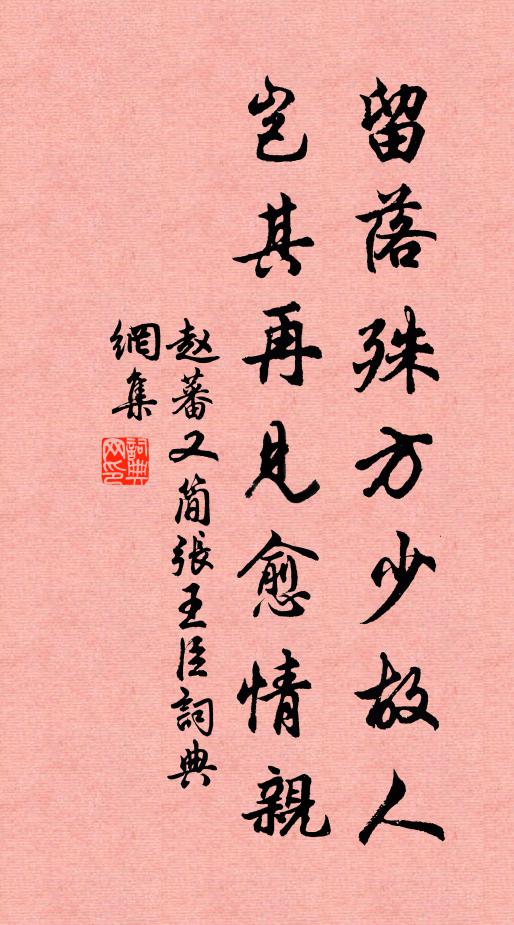 留落殊方少故人
岂其再见愈情親
赵蕃又简張王臣詞典
網集
詞典網印